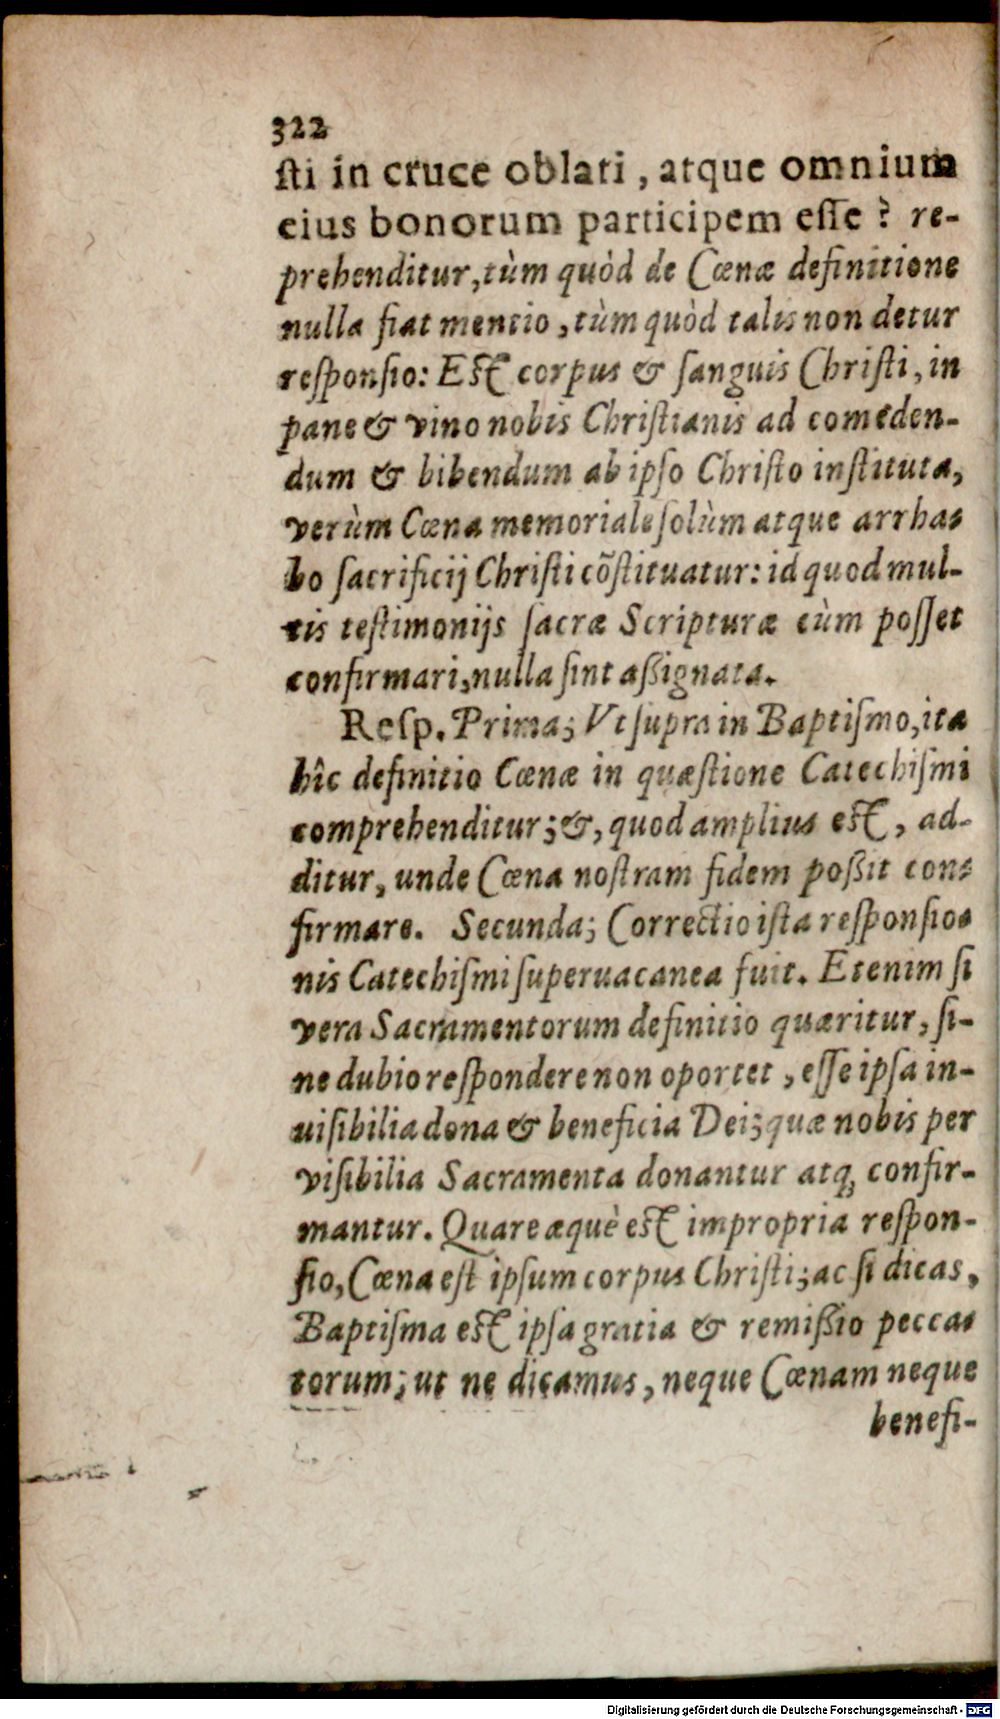 322
sti in cruce oblati, atque omnium
eius bonorum participem esse? re-
prehenditur, tùm quòd de Cœnæ definitione
nulla fiat mentio, tùm quòd talis non detur
responsio: Est corpus & sanguis Christi, in
pane & vino nobis Christianis ad comeden-
dum & bibendum ab ipso Christo instituta,
verùm Cœna memoriale solùm atque arrha-
bo sacrificij Christi cõstituatur: id quod mul-
tis testimonijs sacræ Scripturæ cùm posset
confirmari, nulla sint aßignata.
Resp. Prima; Vt supra in Baptismo, ita
hîc definitio Cœnæ in quæstione Catechismi
comprehenditur; &, quod amplius est, ad-
ditur, unde Cœna nostram fidem poßit con-
firmare. Secunda; Correctio ista responsio-
nis Catechismi superuacanea fuit. Etenim si
vera Sacramentorum definitio quæritur, si-
ne dubio respondere non oportet, esse ipsa in-
uisibilia dona & beneficia Dei; quæ nobis per
visibilia Sacramenta donantur atq; confir-
mantur. Quare æquè est impropria respon-
sio, Cœna est ipsum corpus Christi; ac si dicas,
Baptisma est ipsa gratia & remißio pecca-
torum; ut ne dicamus, neque Cœnam neque
benefi-
Digitalisierung gefördert durch die Deutsche Forschungsgemeinschaft - DFG